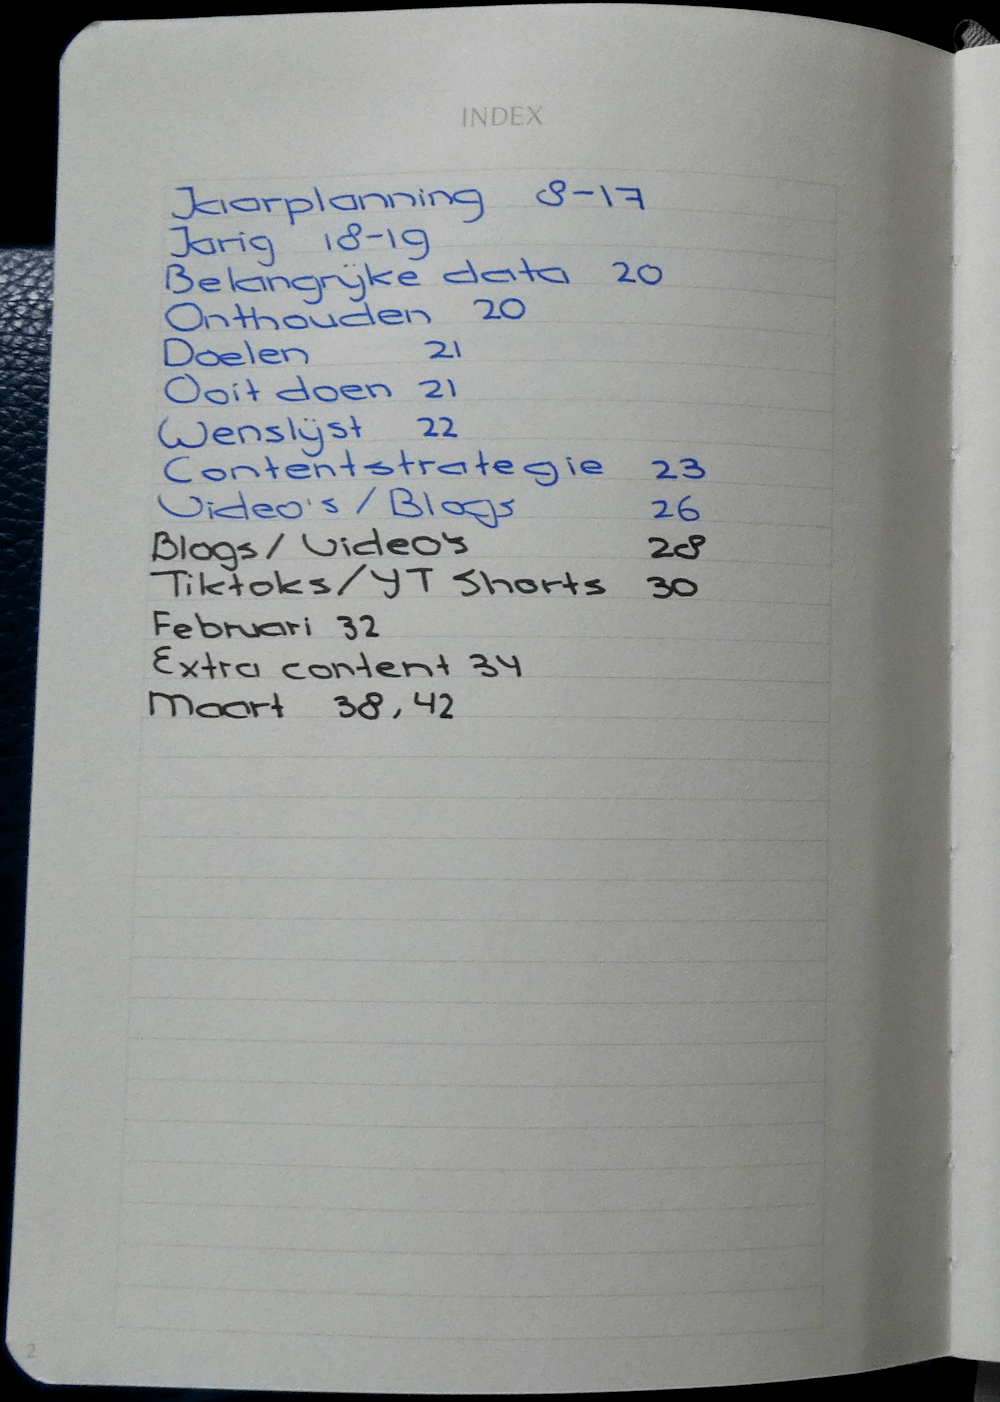 INDEX
Jaarplanning 8-17
Jarig 18-19
Belangrijke data 20
Onthouden 20
Doelen 21
Ooit doen 21
Wenslijst 22
Contentstrategie 23
Video's / Blogs 26
Blogs / Video's 28
Tiktoks / YT Shorts 30
Februari 32
Extra content 34
Maart 38, 42
2